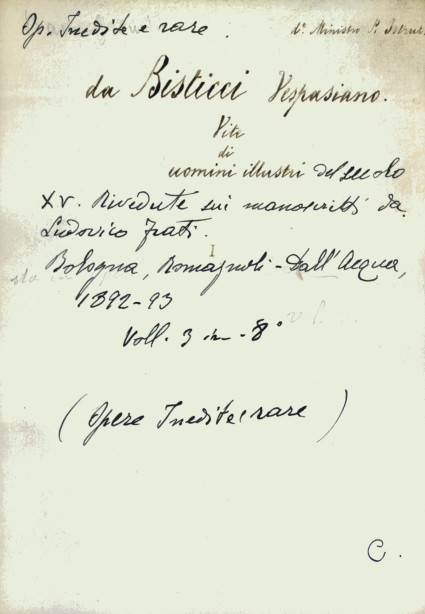 Op. Inedite e rare. d. Ministro P. Istruz.
da Bisticci Vespasiano.
Vite
di
uomini illustri del secolo
XV. Rivedute sui manoscritti da
Ludovico Frati.
Bologna, Romagnoli-Dall'Acqua,
1892-93
Voll. 3 in-8°
(Opere Inedite e rare)
C.